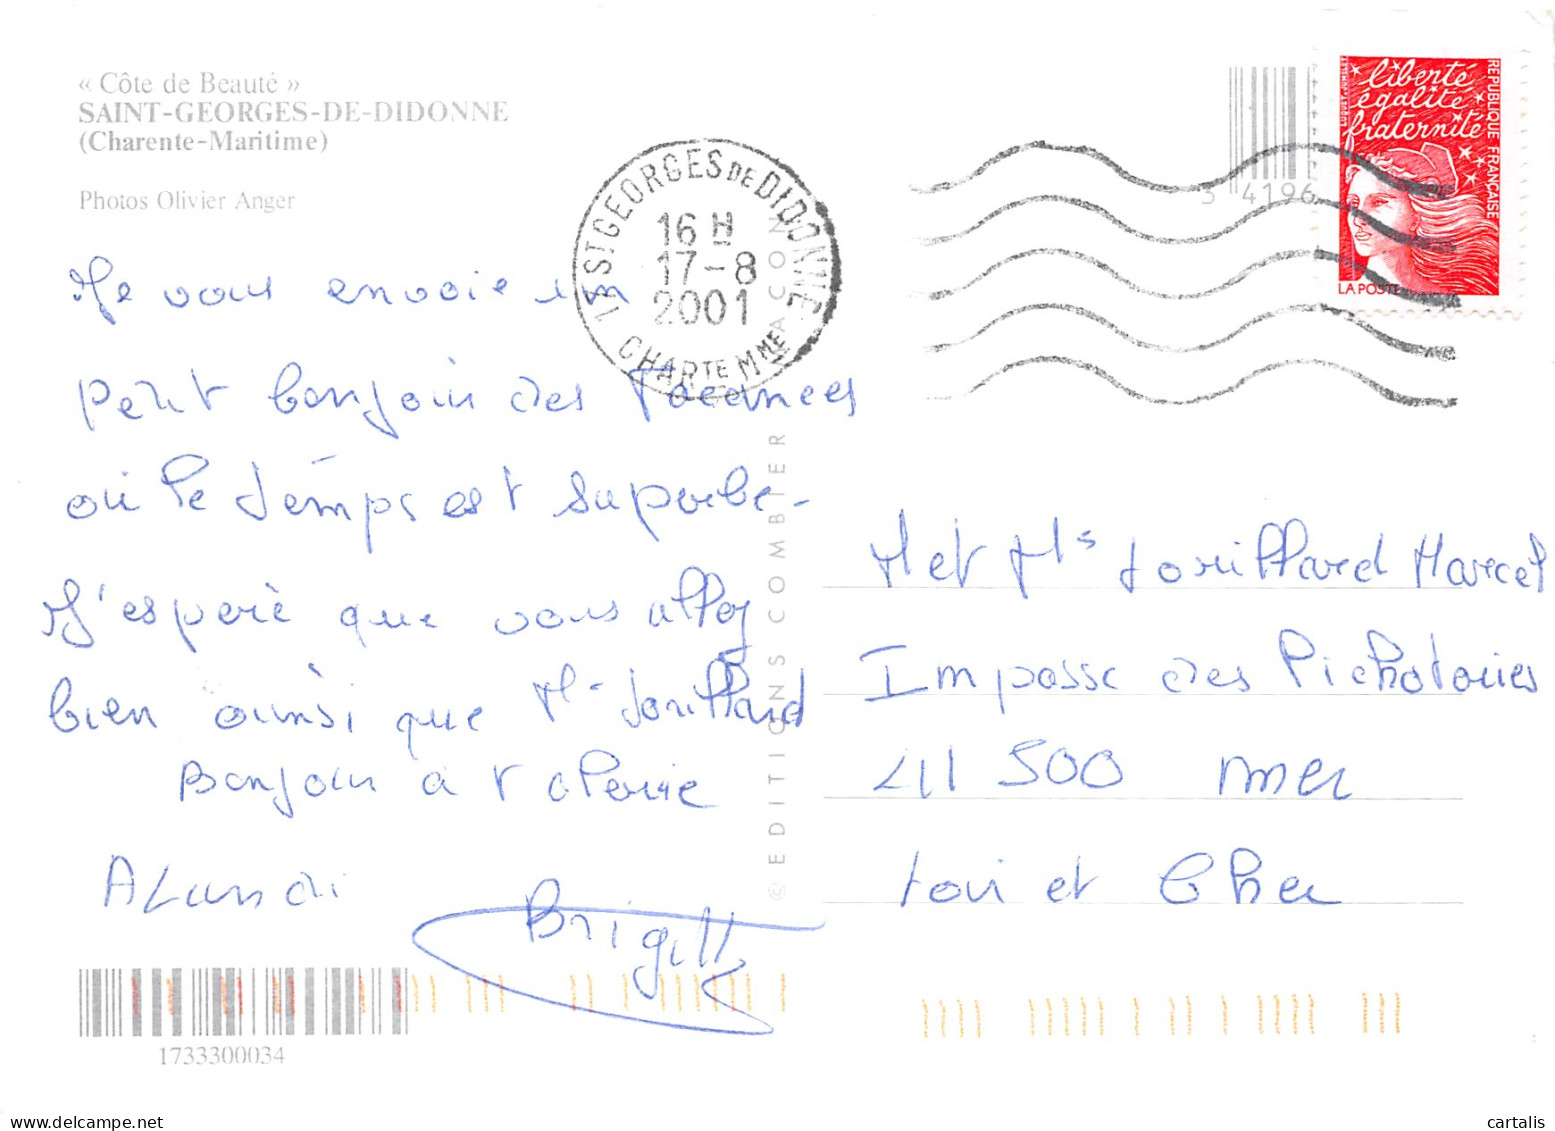 « Côte de Beauté »
SAINT-GEORGES-DE-DIDONNE
(Charente-Maritime)
Photos Olivier Anger
Je vous envoie un
petit bonjour des vacances
où le temps est superbe-
J'espère que vous allez
bien ainsi que Mr Jouillard
Bonjour à Valerie
A Lundi
Brigitte
1733300034
© EDITIONS COMBIER MACON
17 ST GEORGES DE DIDONNE
16 H
17-8
2001
CHARTE MME
3 41196
liberté
égalité
fraternité
REPUBLIQUE FRANÇAISE
LA POSTE
M et Ms Jouillard Marcel
Impasse des Pichotories
41 500 mer
Loir et Cher
cartalis
www.delcampe.net